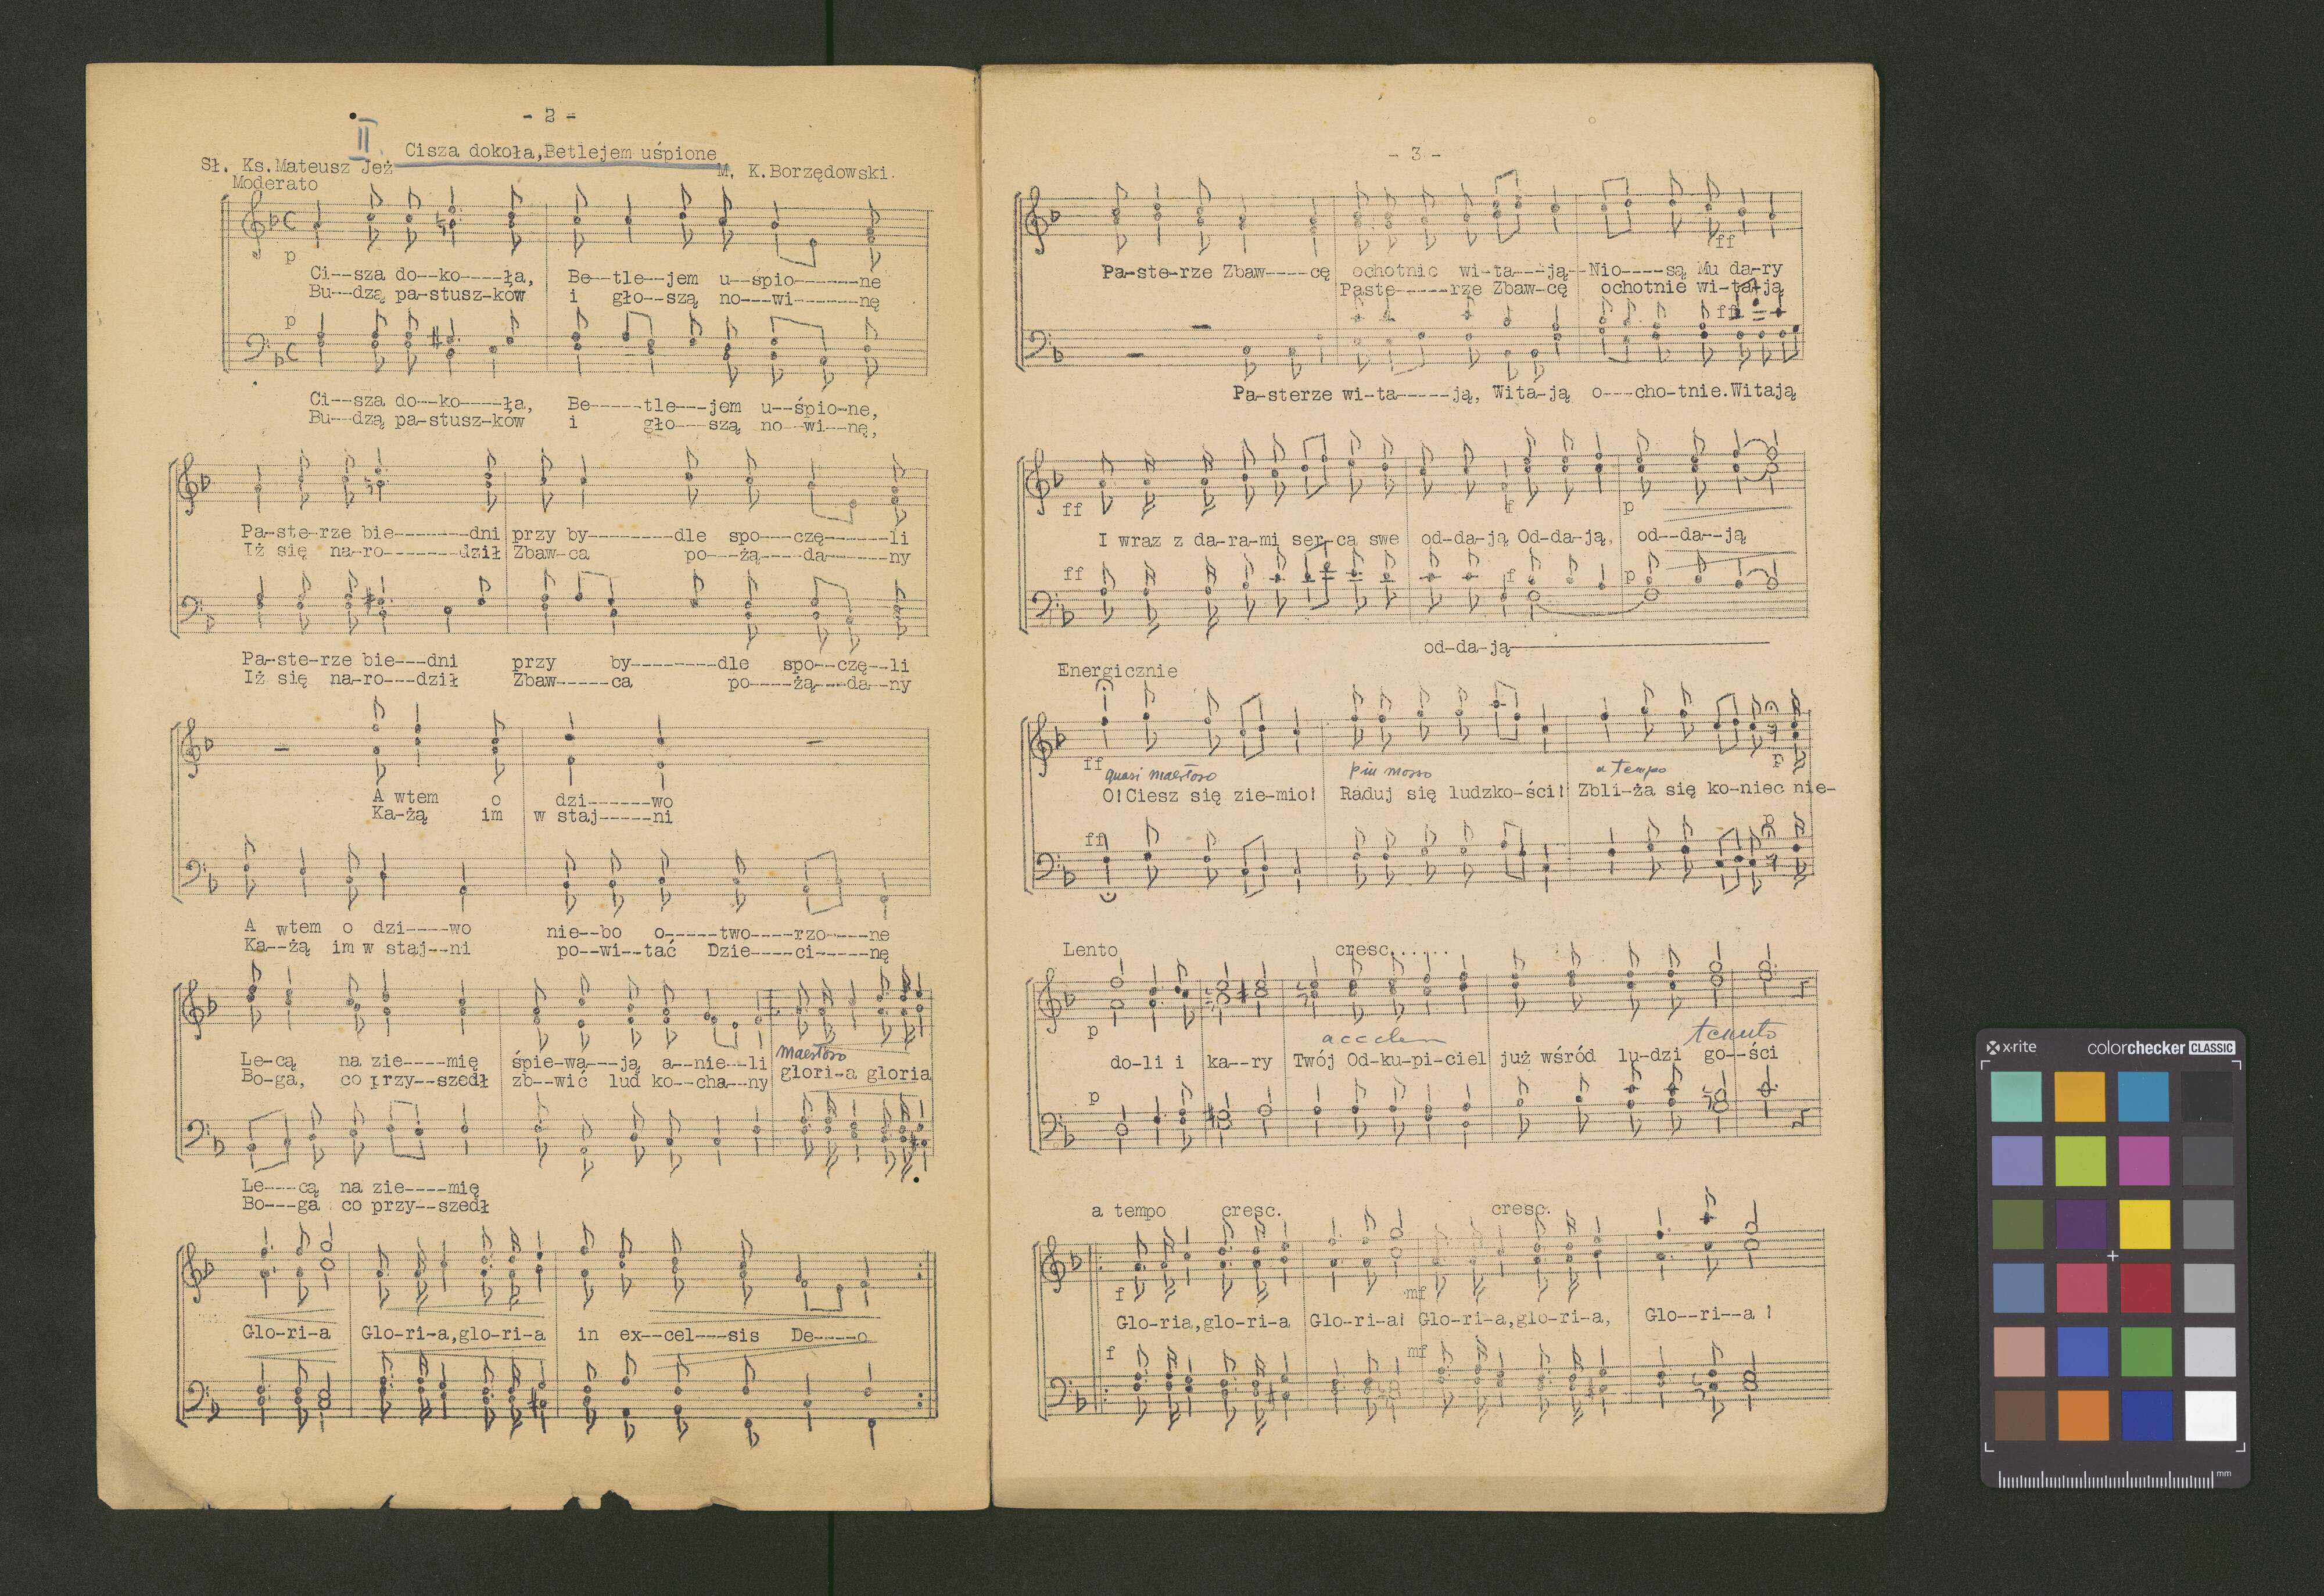 - 2 -
II
Cisza dokoła,Betlejem uśpione
Sł. Ks.Mateusz Jeż
M. K.Borzędowski.
Moderato
p
Ci--sza do--ko----ła, Be--tle--jem u--spio-------ne
Bu--dzą pa-stusz-ków i gło--szą no---wi-------nę
p
Ci--sza do--ko----ła, Be-----tle---jem u--śpio-ne,
Bu--dzą pa-stusz-ków i gło---szą no--wi--nę,
Pa-ste-rze bie--------dni przy by--------dle spo---czę-------li
Iż się na-ro--------dził Zbaw-ca po---żą----da------ny
Pa-ste-rze bie---dni przy by--------dle spo--czę--li
Iż się na-ro---dził Zbaw-----ca po----żą---da--ny
A wtem o dzi------wo
Ka-żą im w staj-----ni
A wtem o dzi----wo nie--bo o-----two----rzo----ne
Ka--żą im w staj--ni po--wi--tać Dzie----ci-----nę
maestoso
Le-cą na zie----mię śpie-wa---ją a--nie--li glori-a gloria
Bo-ga, co przy--szedł zb--wić lud ko--cha--ny
Le---cą na zie----mię
Bo---ga co przy--szedł
Glo-ri-a Glo-ri-a,glo-ri-a in ex--cel---sis De----o
- 3 -
ff
Pa-ste-rze Zbaw----cę ochotnie wi-ta---ją--Nio----są Mu da-ry
Paste-----rze Zbaw-cę ochotnie wi-tają
ff
Pa-sterze wi-ta-----ją, Wita-ją o---cho-tnie.Witają
ff f p
I wraz z da-ra-mi ser-ca swe od-da-ją Od-da-ją, od--da--ją
ff f p
od-da-ją
Energicznie
ff quasi maestoso più mosso a tempo
O!Ciesz się zie-mio! Raduj się ludzko-ści! Zbli-ża się ko-niec nie-
ff
Lento cresc.......
p accelen tenuto
do-li i ka--ry Twój Od-ku-pi-ciel już wśród lu-dzi go--ści
p
a tempo cresc. cresc.
f mf
Glo-ria,glo-ri-a Glo-ri-a! Glo-ri-a,glo-ri-a, Glo--ri--a !
f mf
x-rite colorchecker CLASSIC
mm